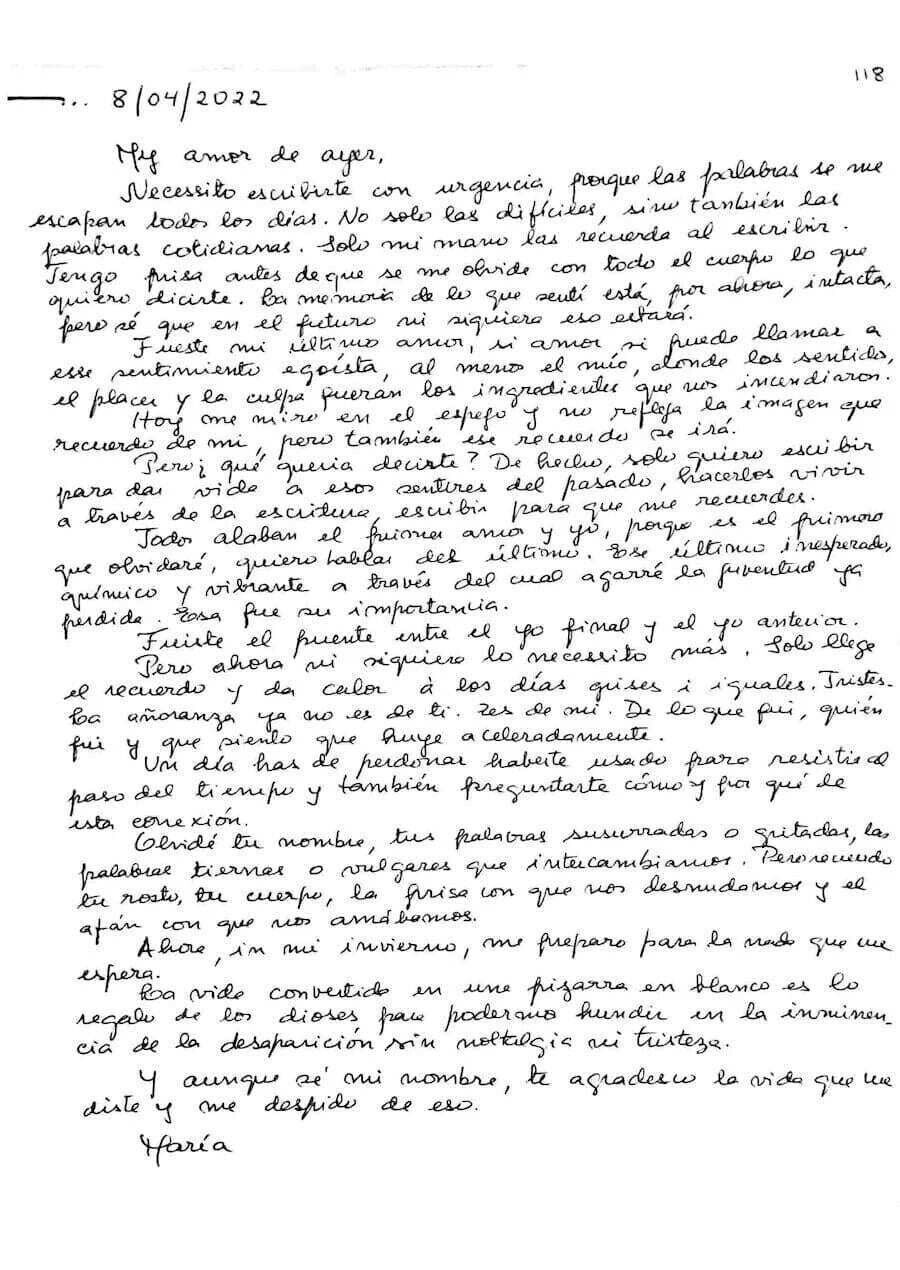 118
... 8/04/2022
My amor de ayer,
Necessito escribirte con urgencia, porque las palabras se me
escapan todos los días. No solo las difíciles, sino también las
palabras cotidianas. Solo mi mano las recuerda al escribir.
Tengo prisa antes de que se me olvide con todo el cuerpo lo que
quiero dicirte. La memoria de lo que sentí está, por ahora, intacta,
pero sé que en el futuro ni siquiera eso estará.
Fueste mi último amor, si amor si puede llamar a
esse sentimiento egoísta, al menos el mío, donde los sentidos,
el placer y la culpa fueran los ingredientes que nos incendiaron.
Hoy me miro en el espejo y no refleja la imagen que
recuerdo de mi, pero también ese recuerdo se irá.
Pero ¿ qué queria decirte? De hecho, solo quiero escribir
para dar vida a esos sentires del pasado, hacerlos vivir
a través de la escritura, escribir para que me recuerdes.
Todos alaban el primer amor y yo, porque es el primero
que olvidaré, quiero hablar del último. Ese último inesperado,
químico y vibrante a través del cual agarré la juventud ya
perdida. Esa fue su importancia.
Fuiste el puente entre el yo final y el yo anterior.
Pero ahora ni siquiera lo necessito más. Solo llega
el recuerdo y da calor à los días grises i iguales. Tristes.
La añoranza ya no es de ti. Es de mi. De lo que fui, quién
fui y que siento que huye aceleradamente.
Un día has de perdonar haberte usado para resistir al
paso del tiempo y también preguntarte cómo y por qué de
esta conexión.
Olvidé tu nombre, tus palabras susurradas o gritadas, las
palabras tiernas o vulgares que intercambiamos. Pero recuerdo
tu rosto, tu cuerpo, la prisa con que nos desnudamos y el
afán con que nos amábamos.
Ahora, in mi invierno, me preparo para la nada que me
espera.
La vida convertida en une pizarra en blanco es lo
regalo de los dioses para podermo hundir en la inminen-
cia de la desaparición sin noltalgia ni tristeza.
Y aunque sé mi nombre, te agradesco la vida que me
diste y me despido de eso.
María